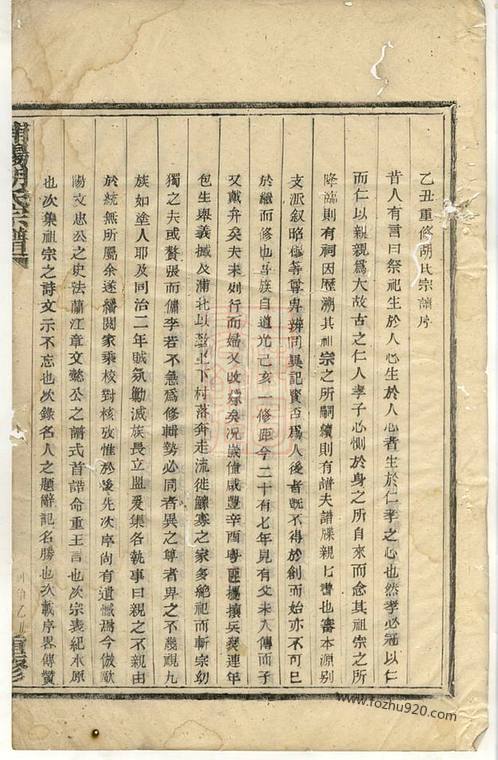 乙丑重修胡氏宗譜序
昔人有言曰祭祀生於人心生於人心者生於仁孝之心也然孝必冠以仁
而仁以親親爲大故古之仁人孝子必惻於身之所自來而念其祖宗之所
降臨則有祠因歷溯其祖宗之所嗣續則有譜夫譜牒親親書也審本源別
支派叙昭穆等尊卑辨同異記實否爲人後者旣不得於創而始亦不可已
於繼而修也吾族自道光己亥一修距今二十有七年見有父未入傳而子
又戴弁矣夫未列行而婦又收嫁矣况歲值咸豐辛酉粵匪擾攘兵燹連年
包生舉義撼及浦北以致上下村落奔走流徙鰥寡之家多絕祀而斬宗幼
獨之夫或贅張而傭李若不急爲修輯勢必同者異之尊者卑之不幾視九
族如塗人耶及同治二年賊氛勦滅族長立盟爰集名執事曰親之不親由
於統無所屬余遂繙閱家乘校對核攷惟於後先次序尚有遺憾焉今倣歐
陽文忠公之史法蘭江章文懿公之譜式首誥命重王言也次宗表紀木原
也次集祖宗之詩文示不忘也次錄名人之題辭記名勝也次載序畧傳贊
胡氏宗譜
重修
www.fozhu920.com